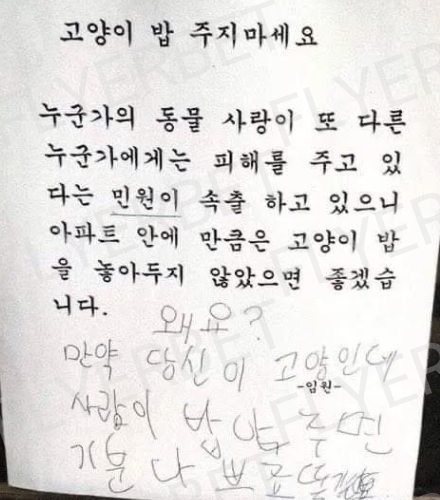 고양이 밥 주지마세요
누군가의 동물 사랑이 또 다른
누군가에게는 피해를 주고 있
다는 민원이 속출 하고 있으니
아파트 안에 만큼은 고양이 밥
을 놓아두지 않았으면 좋겠습
니다.
왜요?
만약 당신이 고양인데
-임원-
사람이 밥 안 주면
기분 나쁘고
FLYERBET